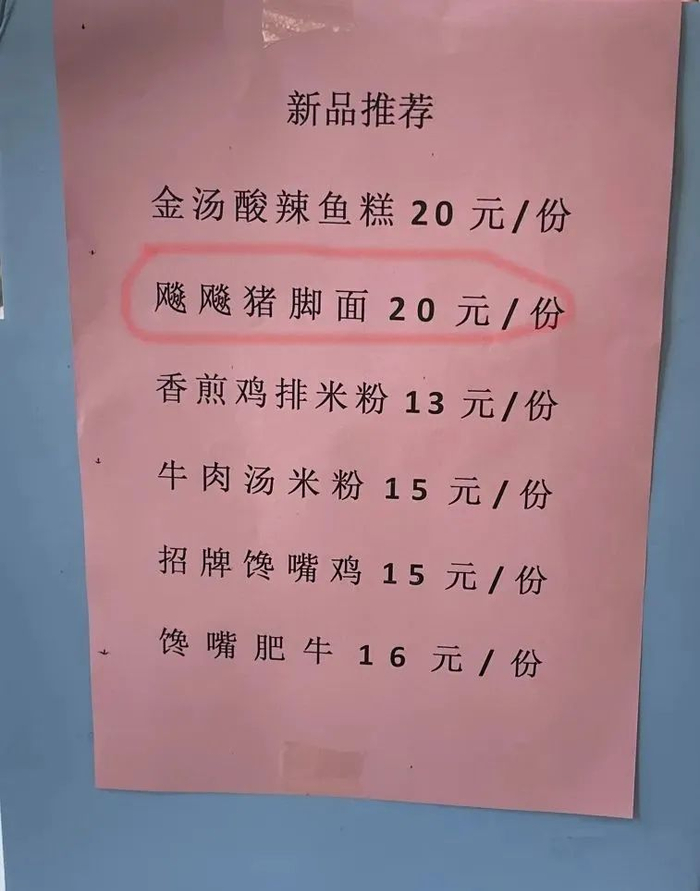 新品推荐
金汤酸辣鱼糕 20 元/份
飚飚猪脚面 20 元/份
香煎鸡排米粉 13 元/份
牛肉汤米粉 15 元/份
招牌馋嘴鸡 15 元/份
馋嘴肥牛 16 元/份